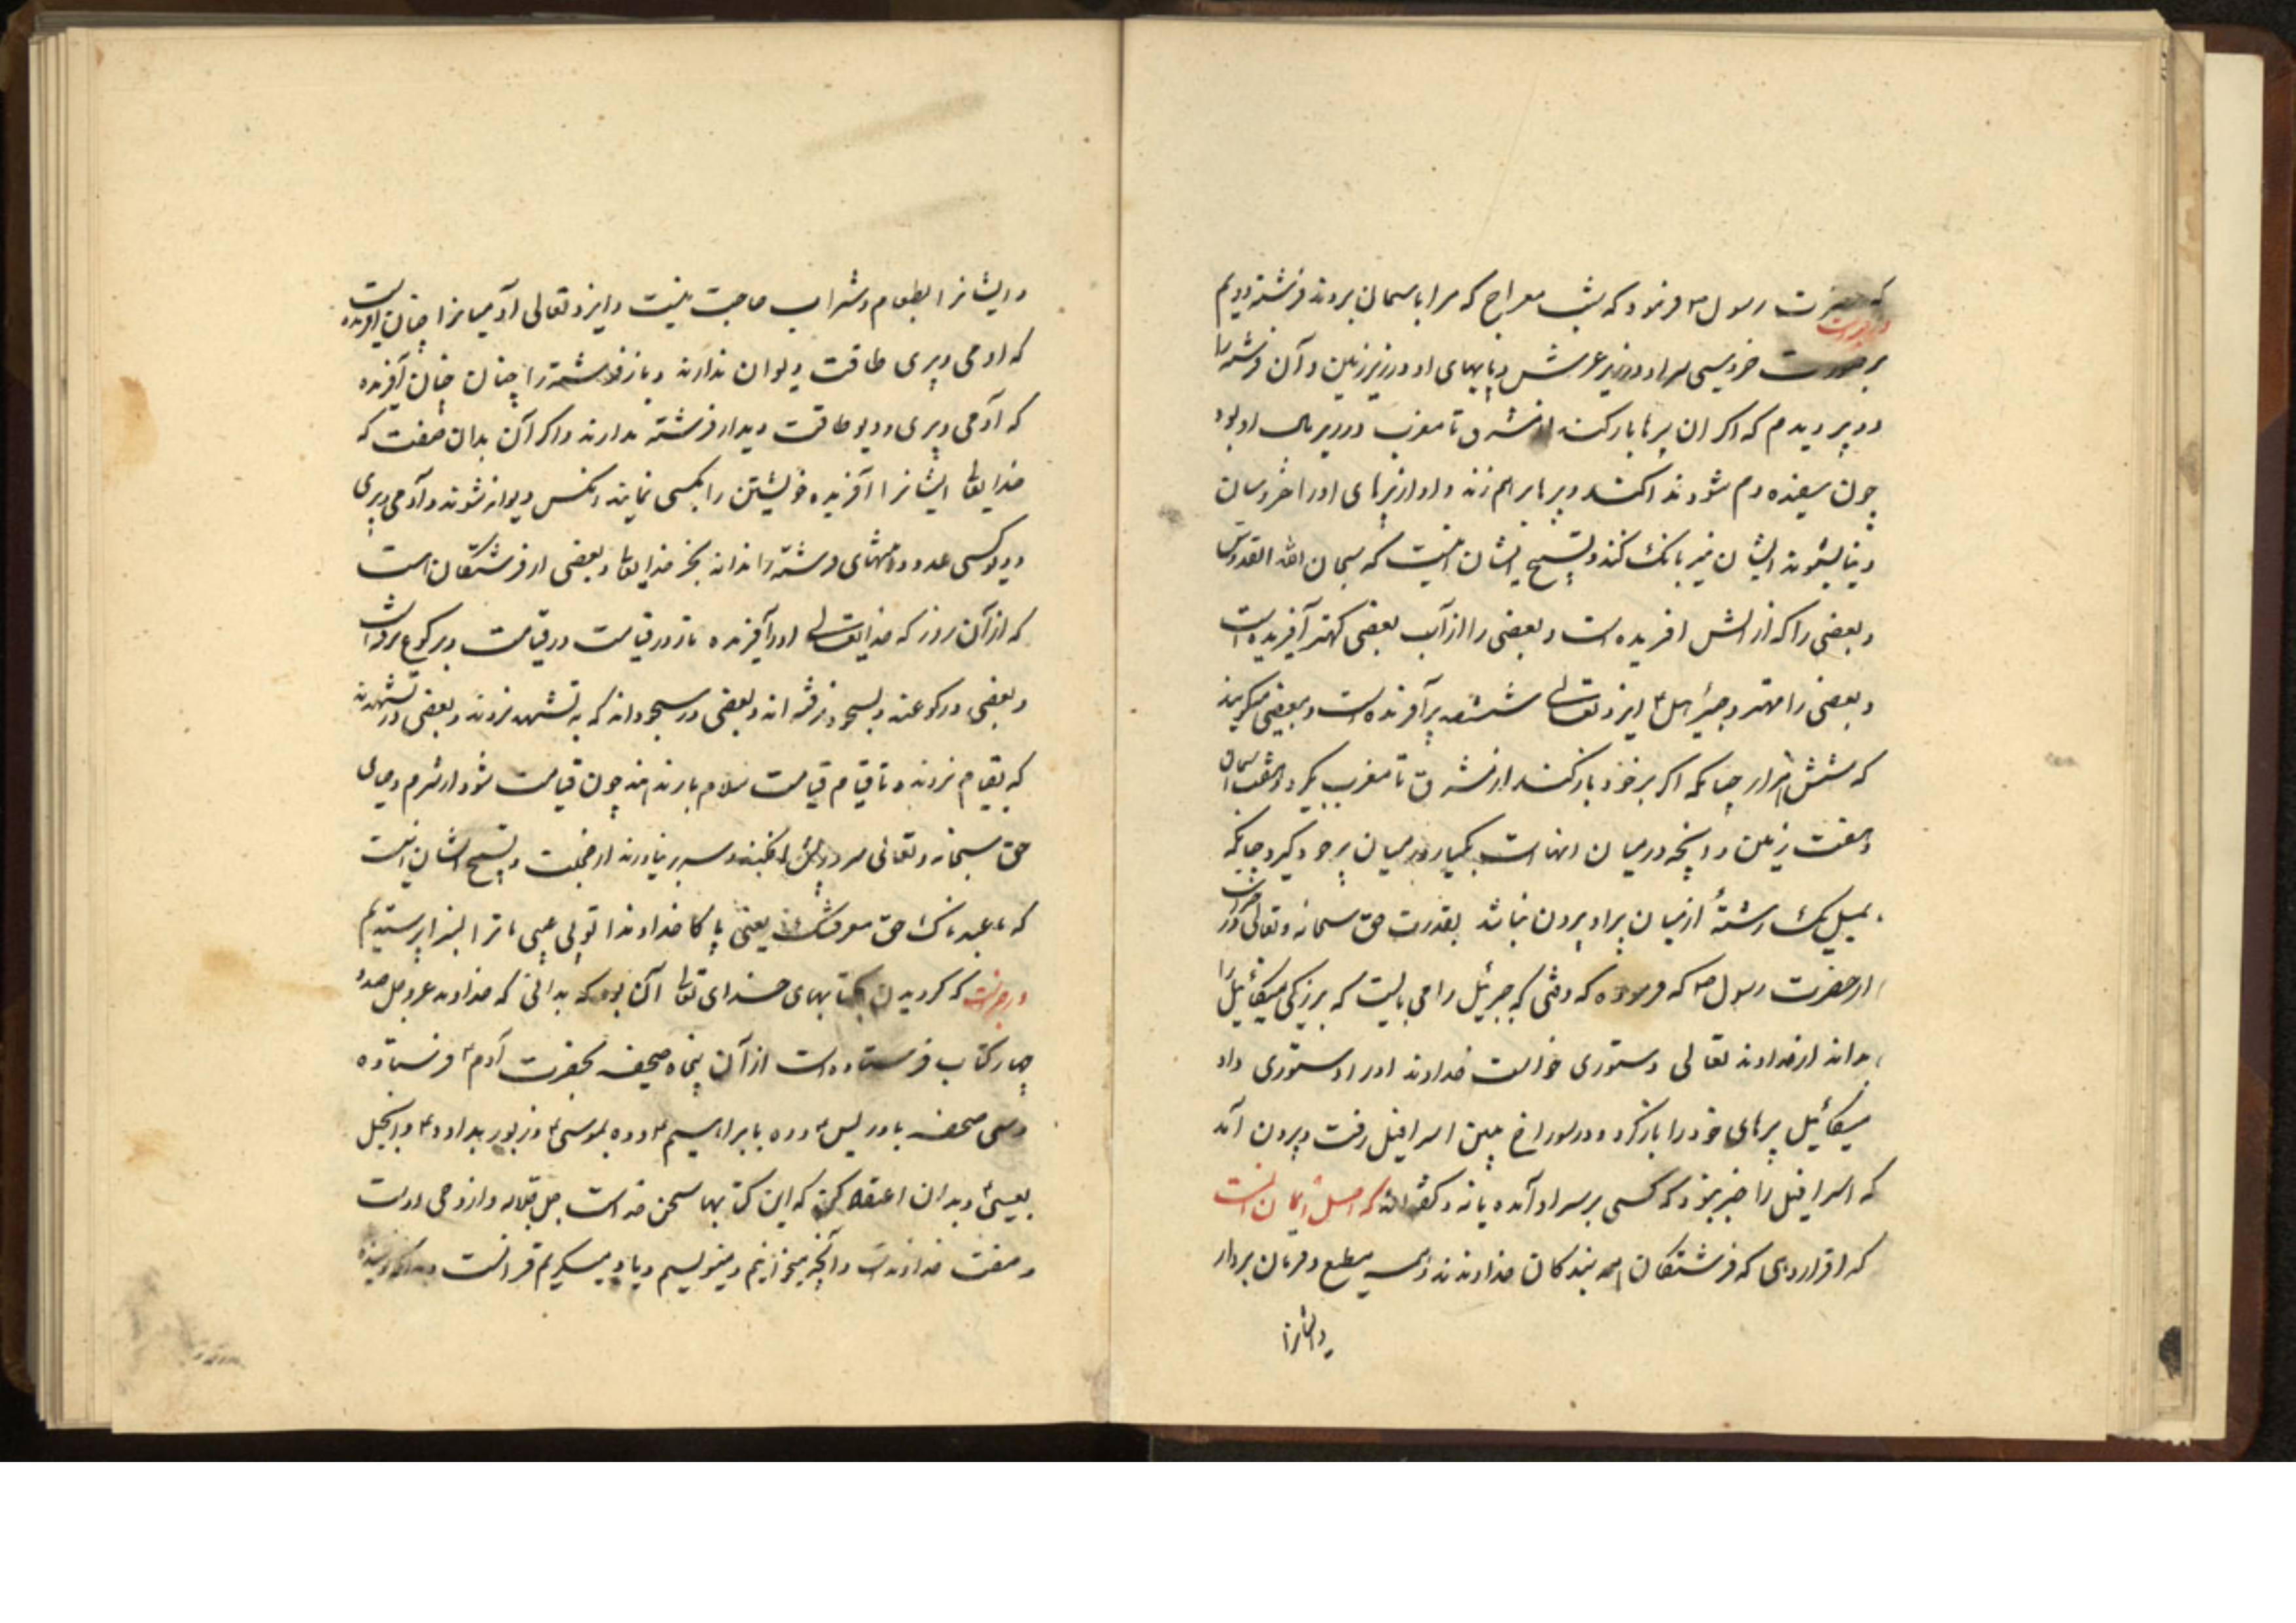 که حضرت رسول ۴ فرمود که بشب معراج که مرا باسمان بردند فرشته دیدم
در خبرست
بر صورت خروسی سر او در زیر عرش و پایهای او در زیر زمین و آن فرشته را
دو پر دیدم که اکر ان پرها باز کند از مشرق تا مغرب در زیر بال او بود
چون سفیده دم شود ندا کند و پرها بر هم زند و اواز پرهای او را خروسان
دنیا بشنوند ایشان نیز بانک کنند و تسبیح ایشان اینست که سبحان الله القدوس
و بعضی را که از اتش افریده است و بعضی را از آب بعضی کهتر آفریده است
و بعضی را مهتر و جبرائیل ۴ ایزد تعالی ششصد پر آفریده است و بعضی میکویند
که شش هزار چنانکه اکر پر خود باز کند از مشرق تا مغرب بکیرد و هفت اسمان
و هفت زمین و انچه در میان انها است بیکبار در میان پر خود کیرد چنانکه
یک رشتهٔ از میان پر او بیرون نباشد بقدرت حق سبحانه و تعالی و در خبرست
از حضرت رسول ۴ که فرموده که وقتی که جبرئیل را می بایست که بزرکی میکائیل را
بداند از خداوند تعالی دستوری خواست خداوند او را دستوری داد
میکائیل پرهای خود را باز کرد و در سوراخ بینی اسرافیل رفت و بیرون آمد
که اسرافیل را خبر نبود که کسی بر سر او آمده یا نه و کفته اند که اصل ایمان انست
که اقرار دهی که فرشتکان همه بندکان خداوندند و همه مطیع و فرمان بردار
و ایشانرا
و ایشانرا بطعام و شراب حاجت نیست و ایزد تعالی آدمیانرا چنان افریده است
که ادمی و پری طاقت دیوان ندارند و باز فرشته را چنان چنان آفریده
که آدمی و پری و دیو طاقت دیدار فرشته ندارند و اکر آن بدان صفت که
خدایتعالی ایشانرا آفریده خویشتن را بکسی نمایند انکس دیوانه شوند و آدمی و پری
و دیو کسی عدد و منتهای فرشته را نداند بجز خدایتعالی و بعضی از فرشتکان است
که از آن روز که خدایتعالی او را آفریده تا روز قیامت در قیامت و برکوع نرفته است
و بعضی در رکوعند و بسجود نرفته اند و بعضی در سجود اند که به تشهد نروند و بعضی در تشهدند
که بقیام نروند و تا قیام قیامت سلام باز ندهند چون قیامت شود از شرم و حیای
حق سبحانه و تعالی سر در پیش افکنند و سر بر نیاورند از خجلت و تسبیح ایشان اینست
که ما عبدناک حق معرفتک یعنی پاکا خداوندا تو بی عیبی ما ترا بسزا نپرستیدیم
در خبرست که کرویدن بکتابهای خدای تعالی آن بود که بدانی که خداوند عز و جل صد و
چهار کتاب فرستاده است از آن پنجاه صحیفه بحضرت آدم ۴ فرستاده
و سی صحف بادریس ۴ و ده بابراهیم ۴ و ده بموسی ۴ و زبور بداود ۴ و انجیل
بعیسی ۴ و بدان اعتقاد کنی که این کتابها سخن خداست جل جلاله و از وحی اوست
و صفت خداوندست و آنچه میخوانیم و مینویسیم و یاد میکیریم قرانست